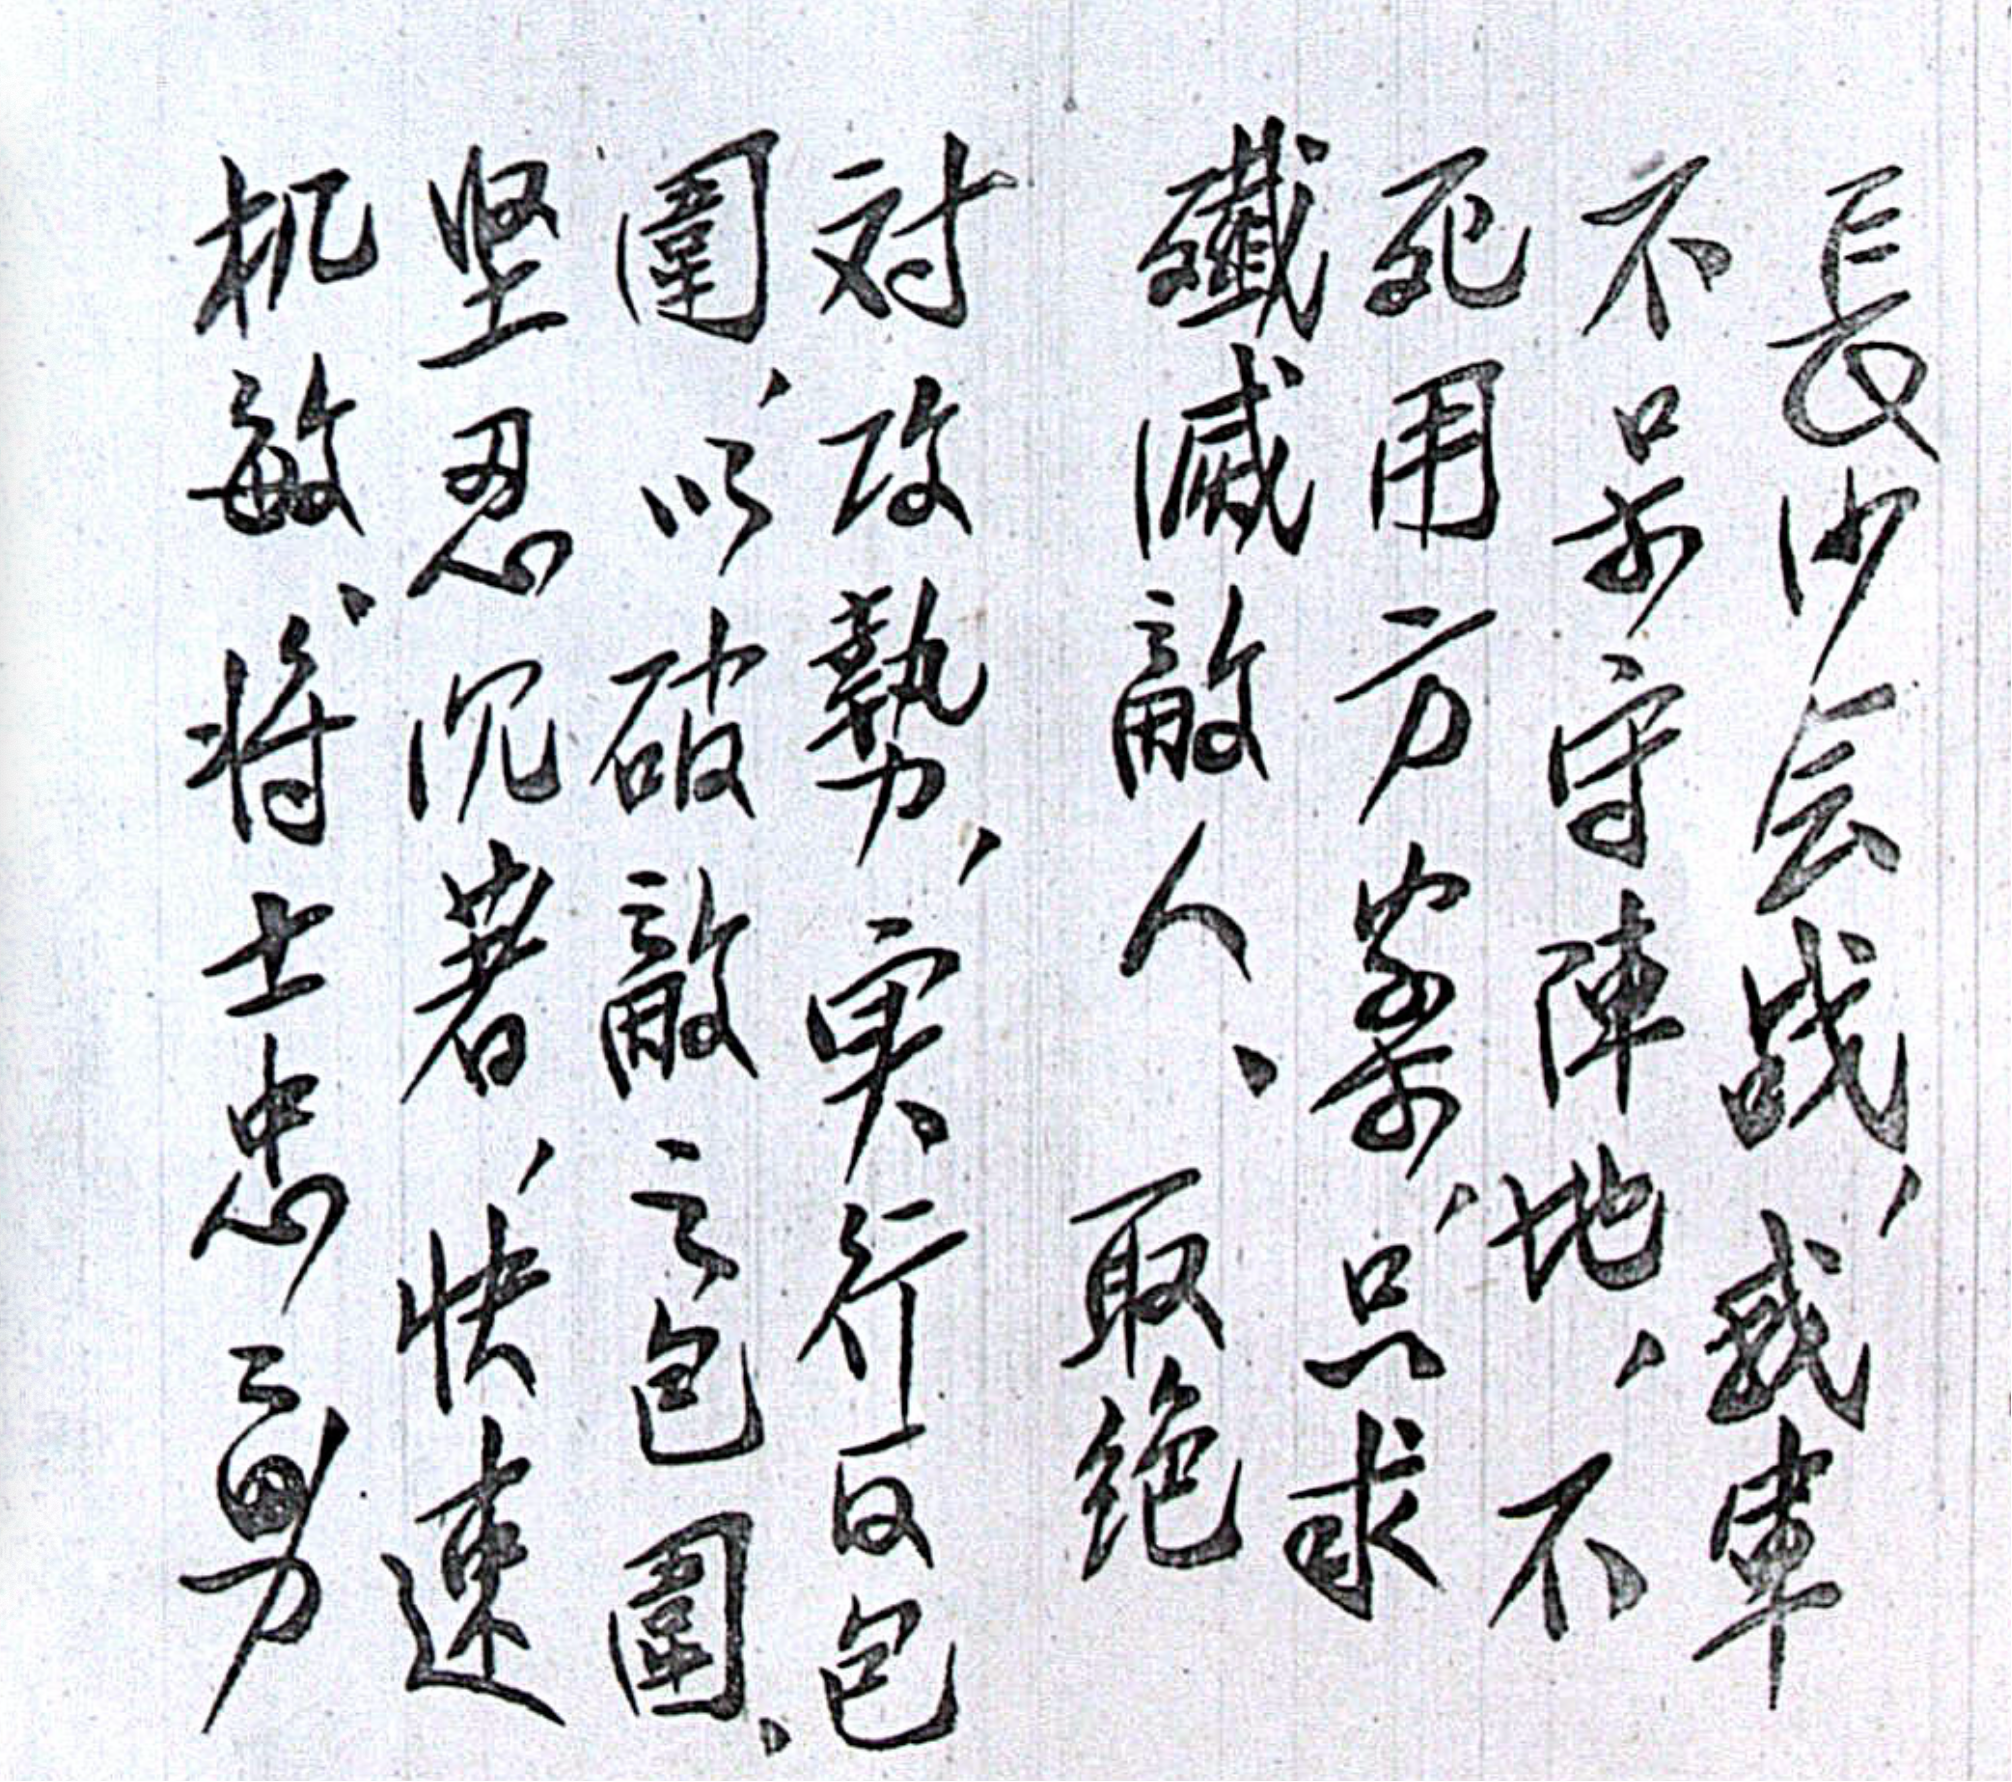 長沙会战，我軍
不呆守陣地，不
死用方案，只求
殲滅敵人、取絶
对攻勢，実行反包
圍，以破敵之包圍、
坚忍沉着，快速
机敏、将士忠勇